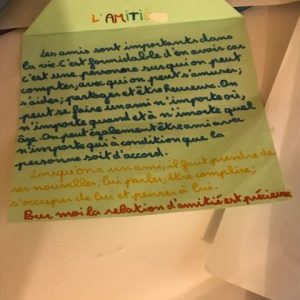 L'AMITIÉ
Les amis sont importants dans
la vie. C'est formidable d'en avoir car
c'est une personne sur qui on peut
compter, avec qui on peut s'amuser;
s'aider; partager et être heureuse. On
peut se faire un ami n'importe où,
n'importe quand et à n'importe quel
âge. On peut également être ami avec
n'importe qui à condition que la
personne soit d'accord.
Lorsqu'on a un ami, il faut prendre de
ses nouvelles; lui parler; être complice;
s'occuper de lui et penser à lui.
Pour moi la relation d'amitié est précieuse